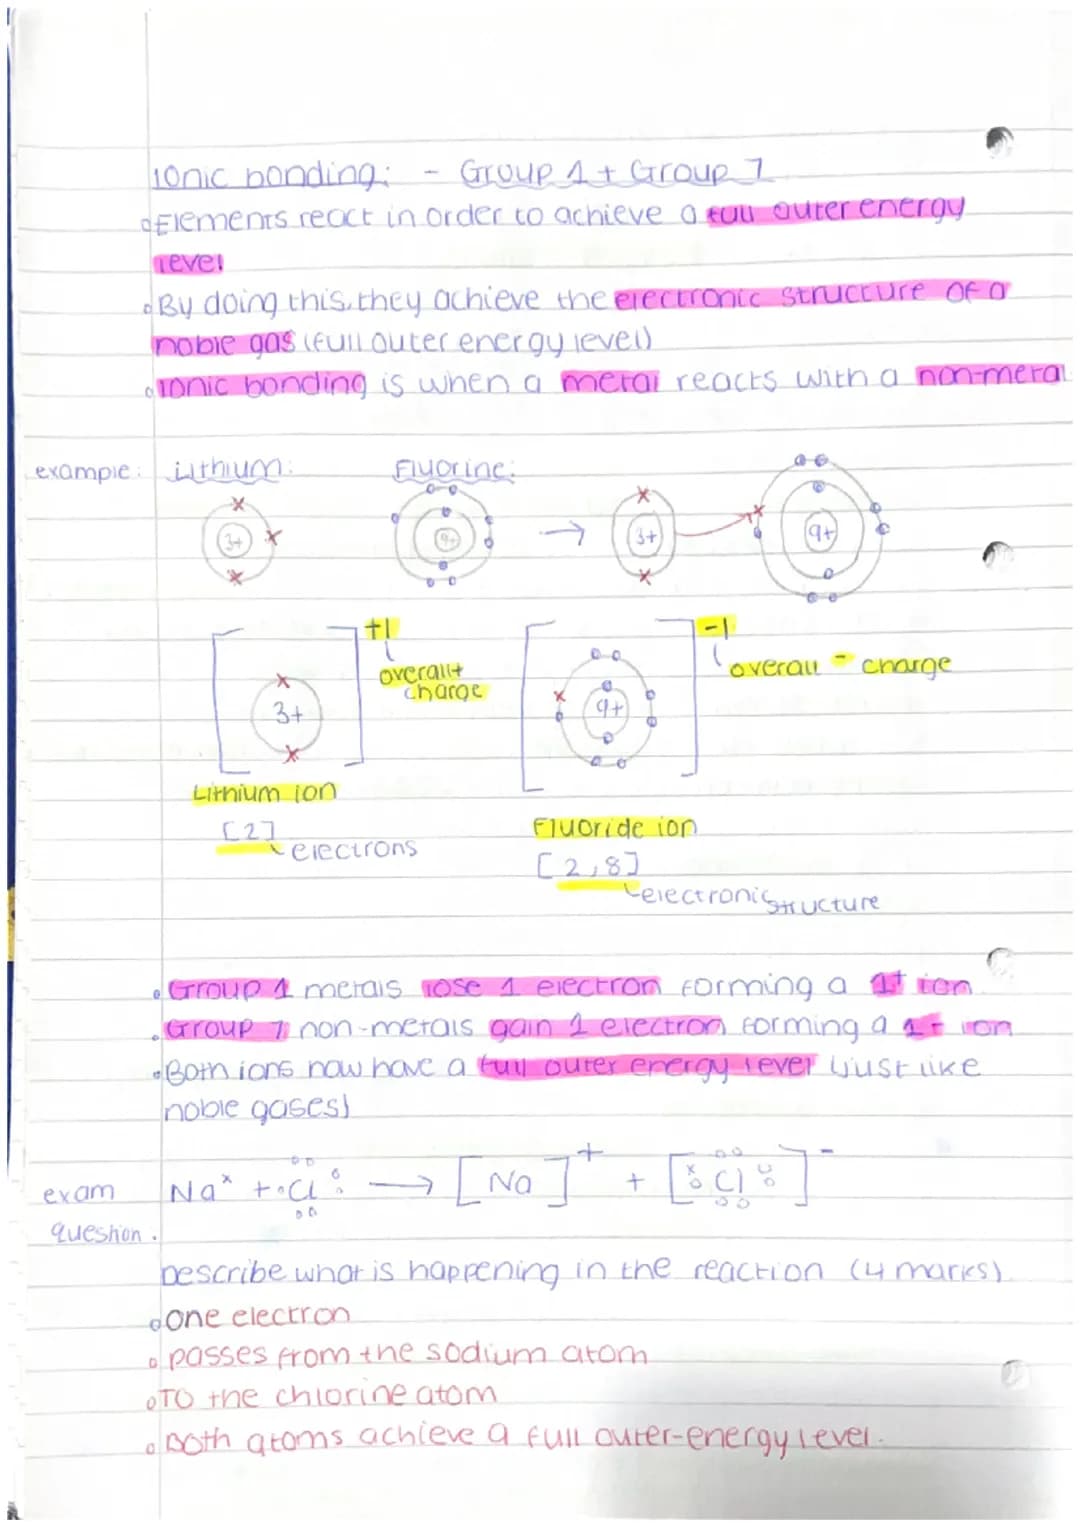 Ionic bonding: - Group 1 + Group 7
Elements react in order to achieve a full outer energy
level
By doing this, they achieve the electronic structure of a
noble gas (full outer energy level)
Ionic bonding is when a metal reacts with a non-metal
example: Lithium: Fluorine:
3+ 9+ → 3+ 9+
+1 -1
overall + charge overall - charge
3+ 9+
Lithium ion
Fluoride ion
[2] electrons
[2,8]
electronic structure
Group 1 metals lose 1 electron forming a 1+ ion
Group 7 non-metals gain 1 electron forming a 1- ion
Both ions now have a full outer energy level (just like
noble gases)
Na× + Cl → [Na]+ + [Cl]-
exam
question.
Describe what is happening in the reaction (4 marks)
One electron
passes from the sodium atom
TO the chlorine atom
Both atoms achieve a full outer-energy level.